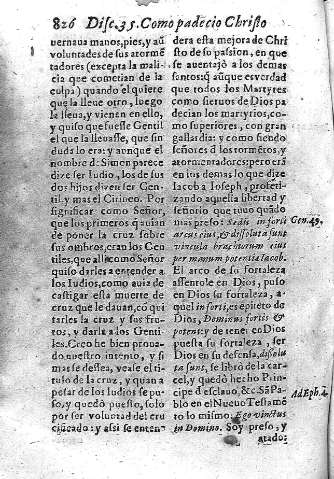 826 Disc. 35. Como padecio Christo
uernaua manos, pies, y aũ
voluntades de sus atormẽ
tadores (excepta la mali-
cia que cometian de la
culpa) quando el quiere
que la lleue otro, luego
la lleua, y vienen en ello,
y quiso que fuesse Gentil
el que la lleuasse, que sin
duda lo era: y aunque el
nombre d. Simon parece
dize ser Iudio, los de sus
dos hijos dizen ser Gen-
til y mas el Cirineo. Por
significar como Señor,
que los primeros q̃ auian
de poner la cruz sobre
sus ombros, eran los Gen
tiles, que allí como Señor
quiso darles a entender a
los Iudios, como auia de
castigar esta muerte de
cruz que le dauan, cõ qui
tarles la cruz y sus fru-
tos, y darla a los Genti-
les. Creo he bien proua-
do nuestro intento, y si
mas se dessea, vease el ti-
tulo de la cruz, y quan a
pesar de los Iudios se pu-
so, y quedò puesto, solo
por ser voluntad del cru
cificado: y assi se enten-
dera esta mejora de Chri
sto de su passion, en que
se auentajò a los demas
santos: q̃ aũque es verdad
que todos los Martyres
como sieruos de Dios pa
decian los martyrios, co-
mo superiores, con gran
gallardia: y como siendo
señores d los tormẽtos, y
atormentadores: pero erã
en los demas lo que dize
Iacob a Ioseph, profeti-
zando aquella libertad y
señorio que tuuo quãdo
mas preso: Sedit in forti
arcus eius, & dissoluta sunt
vincula brachiorum eius
per manum potentis Iacob.
El arco de su fortaleza
assentole en Dios, puso
en Dios su fortaleza, a-
quel in forti, es epiteto de
Dios, Dominus fortis &
potens: y de tener en Dios
puesta su fortaleza, ser
Dios en su defensa, dissolu
ta sunt, se librò de la car-
cel, y quedò hecho Prin-
cipe d esclauo, &c. S. Pa-
blo en el Nueuo Testamẽ
to lo mismo, Ego vinctus
in Domino. Soy preso, y
atado:
Gen. 49.
Ad Eph. 4.